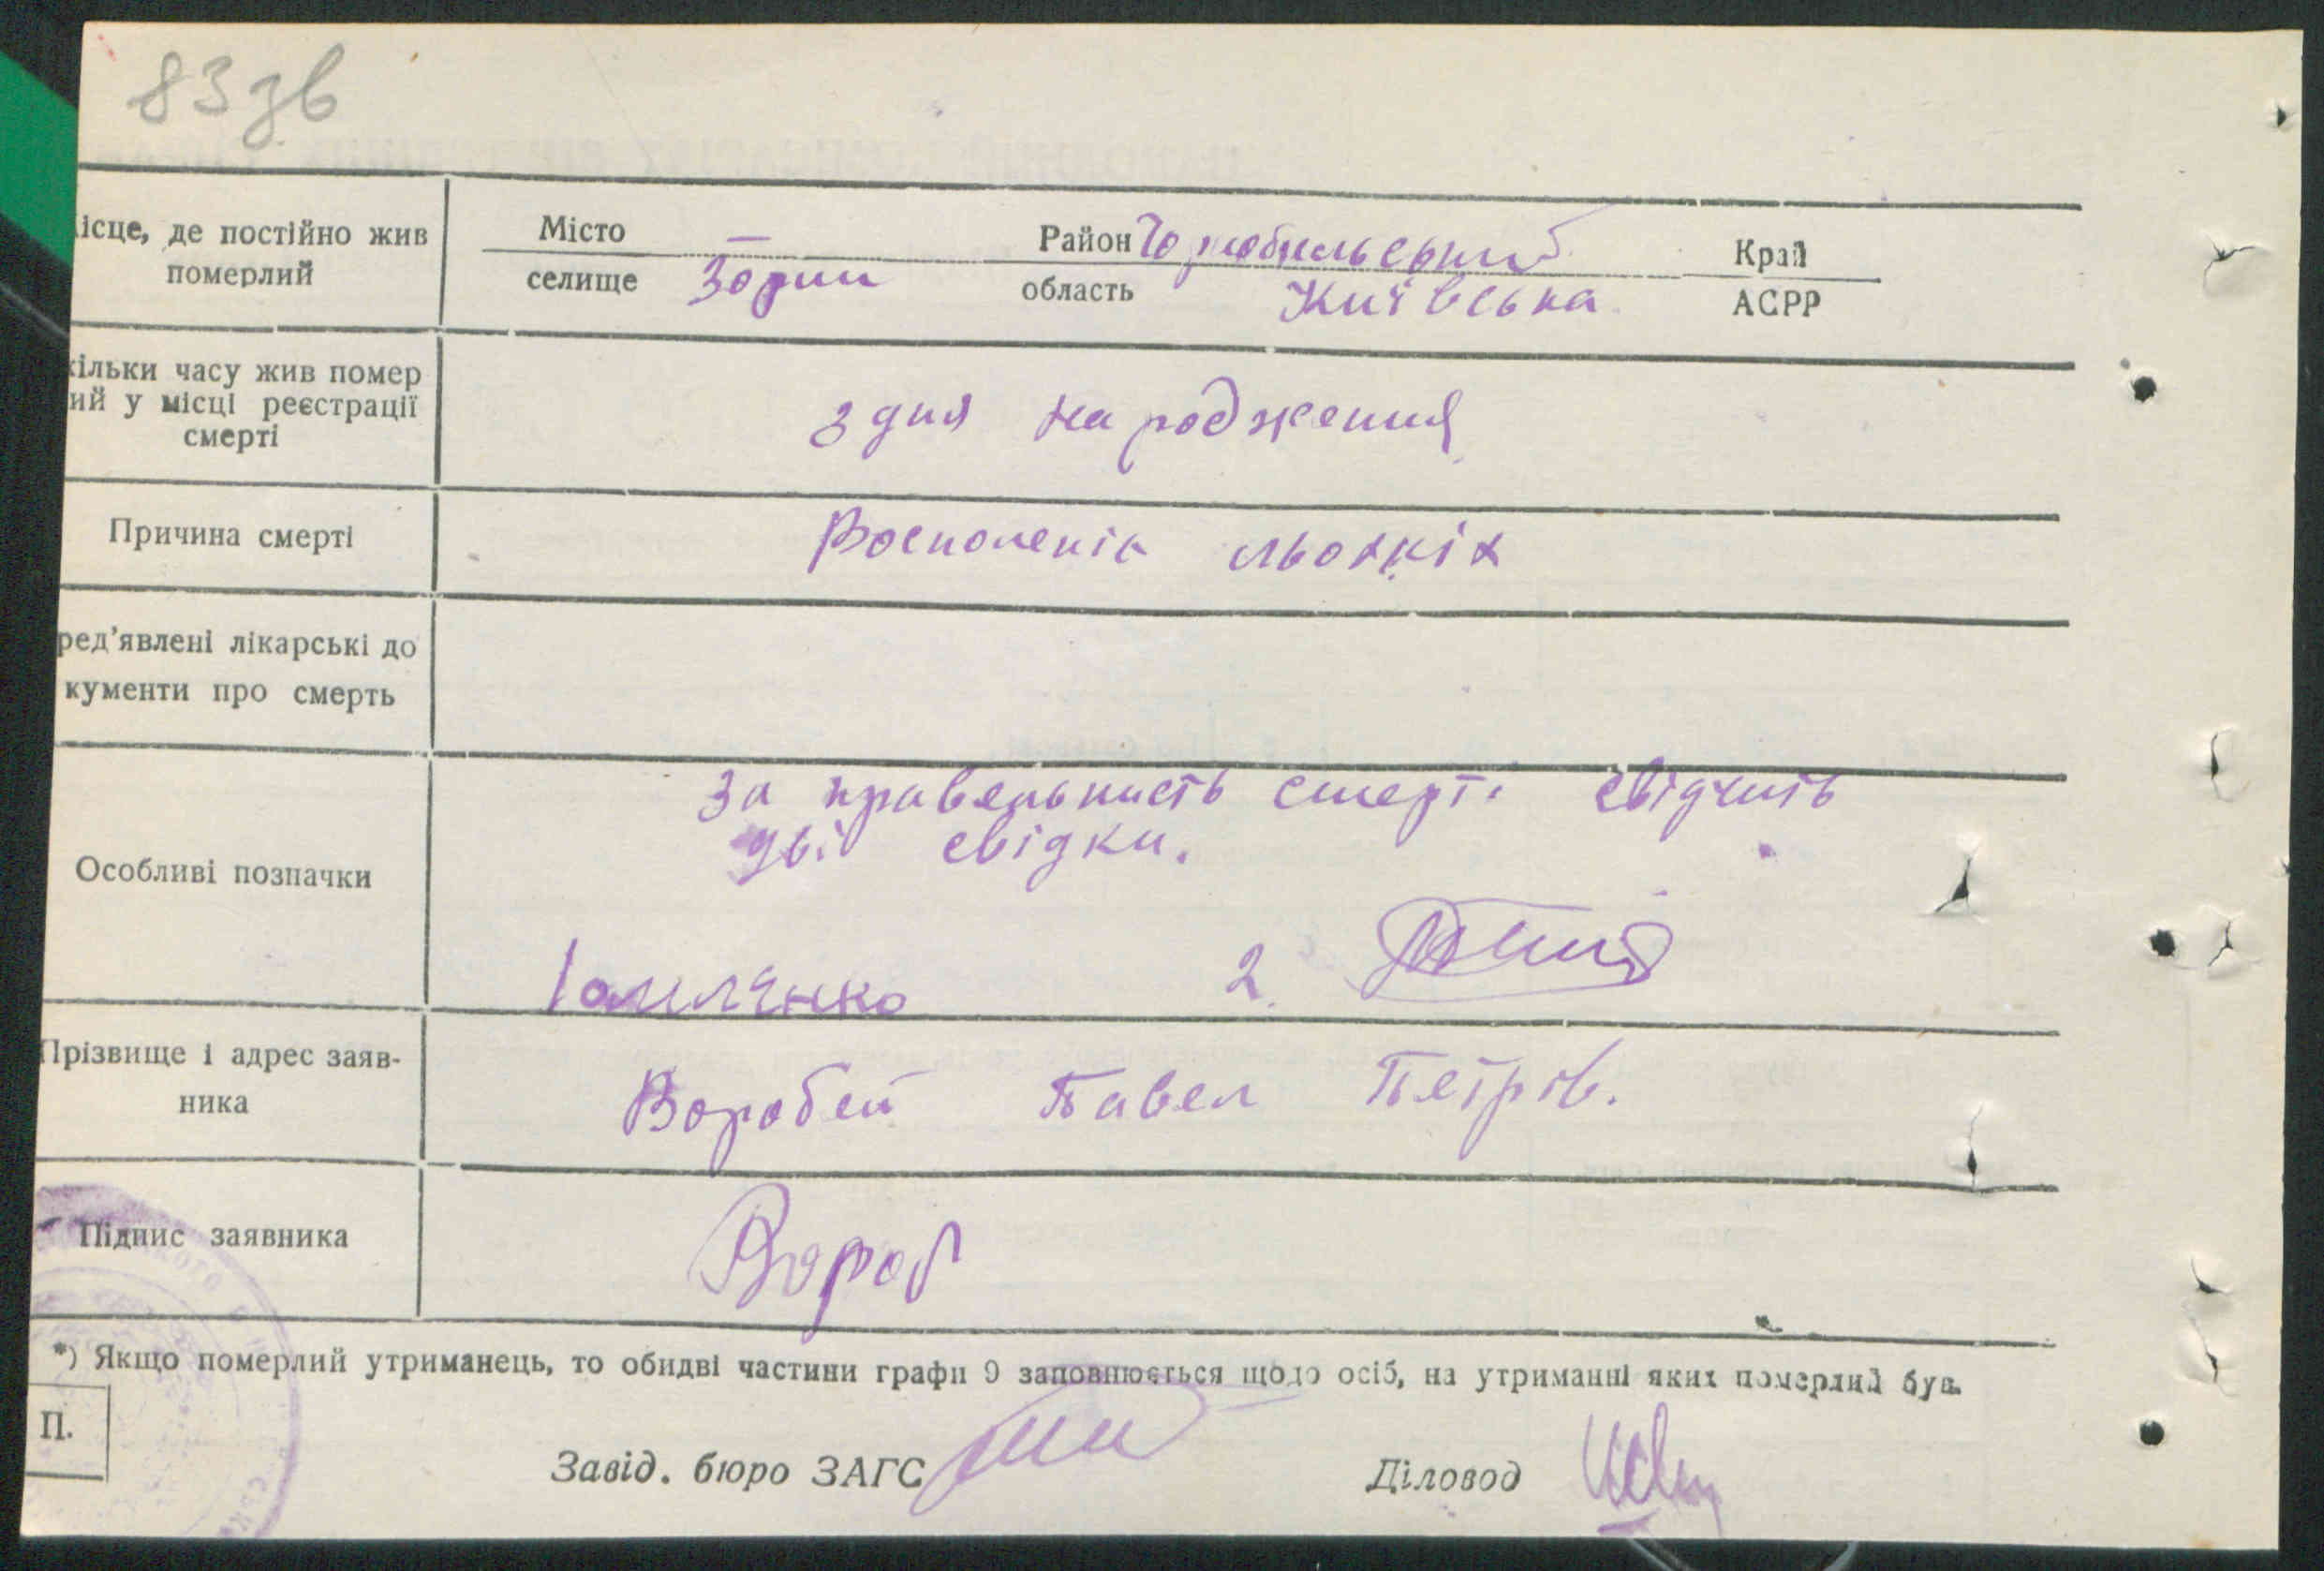 83 зв
ісце, де постійно жив
померлий
Місто — Район Чорнобильський Край
селище Зорин область Київська АСРР
кільки часу жив помер
ий у місці реєстрації
смерті
з дня народження
Причина смерті
Восполеніє льохкіх
ред'явлені лікарські до
кументи про смерть
За правельність смерті свідчить
дві свідки.
Особливі позначки
2.
Прізвище і адрес заяв-
ника
Воробей Павел Петрів.
Підпис заявника
Вороб
*) Якщо померлий утриманець, то обидві частини графи 9 заповнюється щодо осіб, на утриманні яких померлий був.
П.
Завід. бюро ЗАГС
Діловод